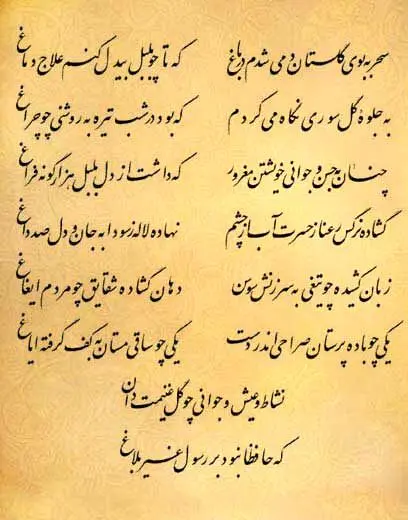 سحر به بوی گلستان دمی شدم در باغ که تا چو بلبل بیدل کنم علاج دماغ
به جلوهٔ گل سوری نگاه می‌کردم که بود در شب تیره به روشنی چو چراغ
چنان به حسن و جوانی خویشتن مغرور که داشت از دل بلبل هزار گونه فراغ
گشاده نرگس رعنا ز حسرت آب از چشم نهاده لاله ز سودا به جان و دل صد داغ
زبان کشیده چو تیغی به سرزنش سوسن دهان گشاده شقایق چو مردم ایغاغ
یکی چو باده پرستان صراحی اندر دست یکی چو ساقی مستان به کف گرفته ایاغ
نشاط و عیش و جوانی چو گل غنیمت دان
که حافظا نبود بر رسول غیر بلاغ